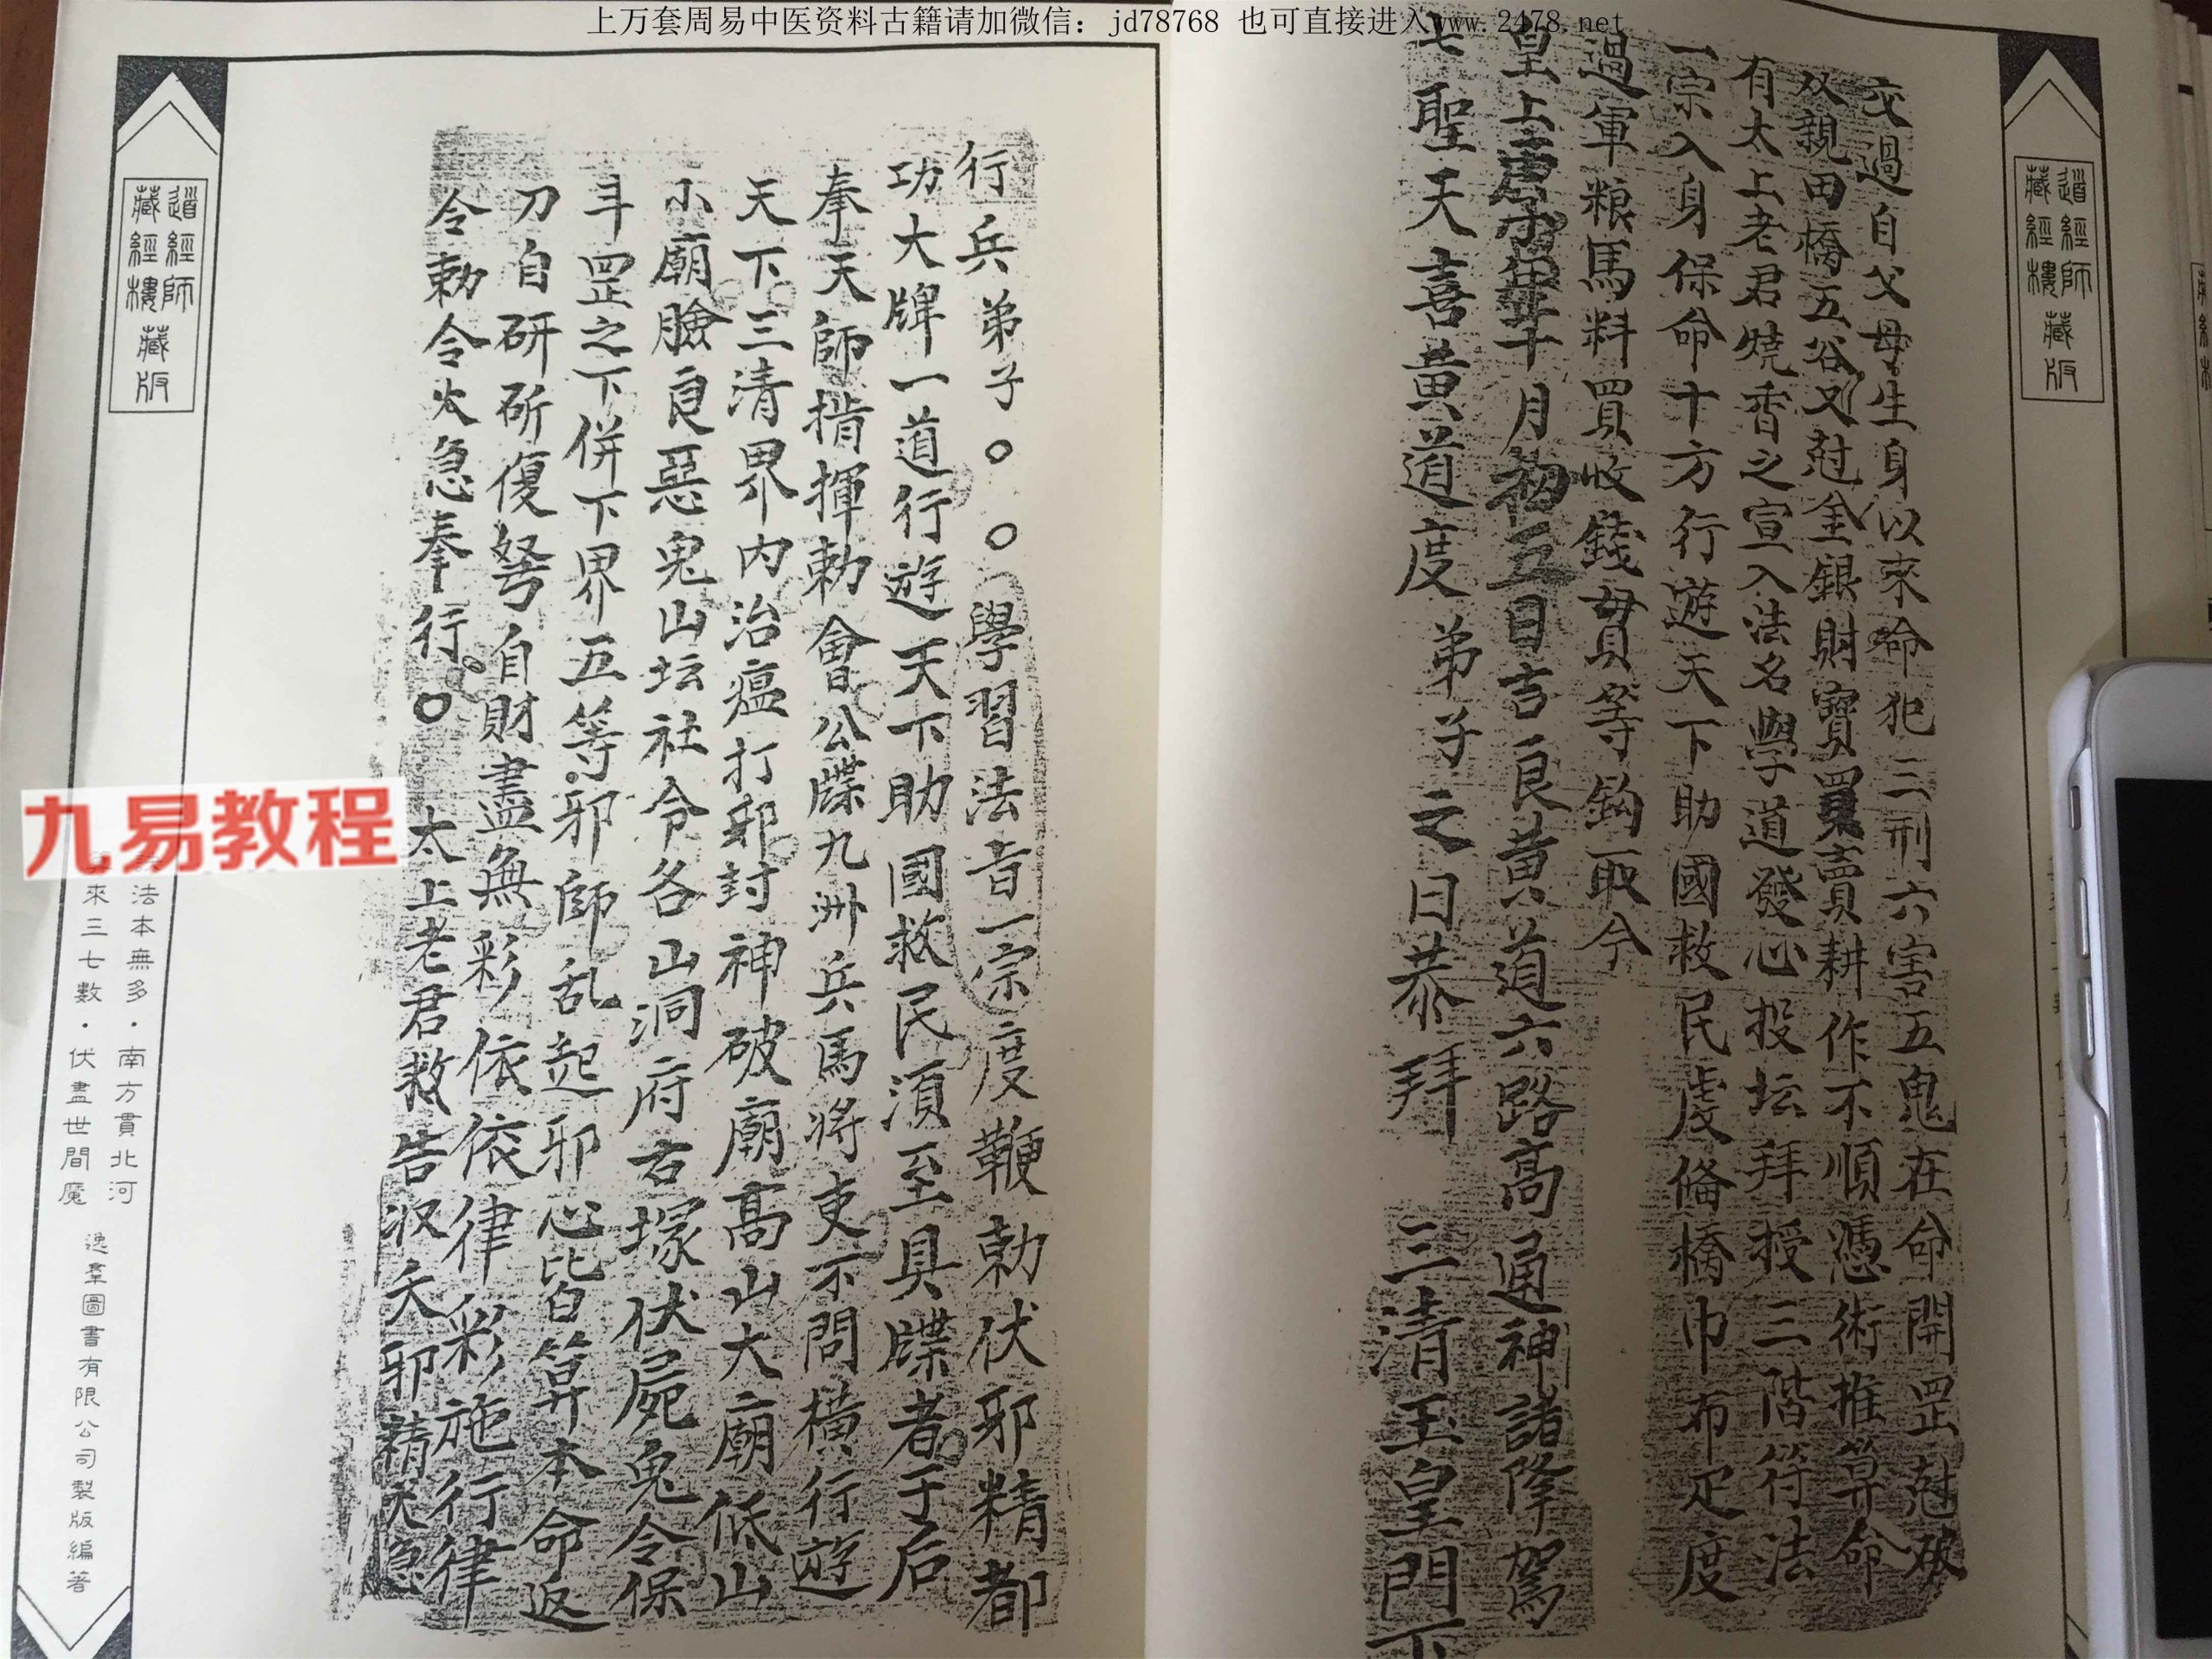 上万套周易中医资料古籍请加微信：jd78768 也可直接进入www.2478.net
道經師
藏經樓藏版
交過自父母生身以來命犯三刑六害五鬼在命開罡尅破
双親田橋五谷又尅金銀財寶買賣耕作不順憑術推算命
有太上老君燒香之宣入法名學道發心投坛拜授三階符法
一宗入身保命十方行遊天下助國救民虔俻橋巾布疋度
過軍粮馬料買收錢貫等鈎取今
皇上年十月初五日吉良黄道六路高通神諸降駕
七聖天喜黄道度弟子之日恭拜 三清玉皇門下
行兵弟子○○學習法旨一宗度鞭勅伏邪精都
功大牌一道行遊天下助國救民湏至具牒者于后
奉天師指揮勅會公牒九洲兵馬將吏不問橫行遊
天下三清界内治瘟打邪封神破廟高山大廟低山
小廟臉良惡鬼山坛社令各山洞府古塚伏屍鬼令保
斗罡之下併下界五等邪師乱起邪心皆算本命返
刀自研斫復弩自財盡無彩依依律彩施行律
令勅令火急奉行○太上老君救告汉天邪精火急
道經師
藏經樓藏版
九易教程
法本無多·南方貫北河
來三七數·伏盡世間魔
逸羣圖書有限公司製版編著